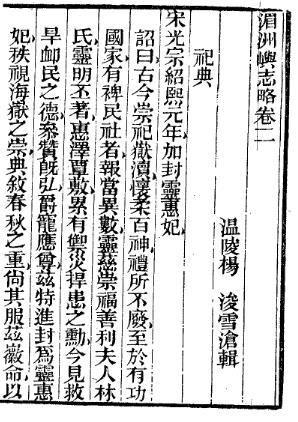 湄洲嶼志略卷二
温陵楊 浚雪滄輯
祀典
宋光宗紹熙元年加封靈惠妃
詔曰古今崇祀嶽瀆懷柔百神禮所不廢至於有功
國家有裨民社者報當異數靈茲崇福善利夫人林
氏靈明丕著惠澤覃敷累有禦災捍患之勳今見救
旱卹民之德叅贊旣弘爵寵應尊茲特進封爲靈惠
妃秩視海嶽之崇典敘春秋之重尚其服茲薇命以